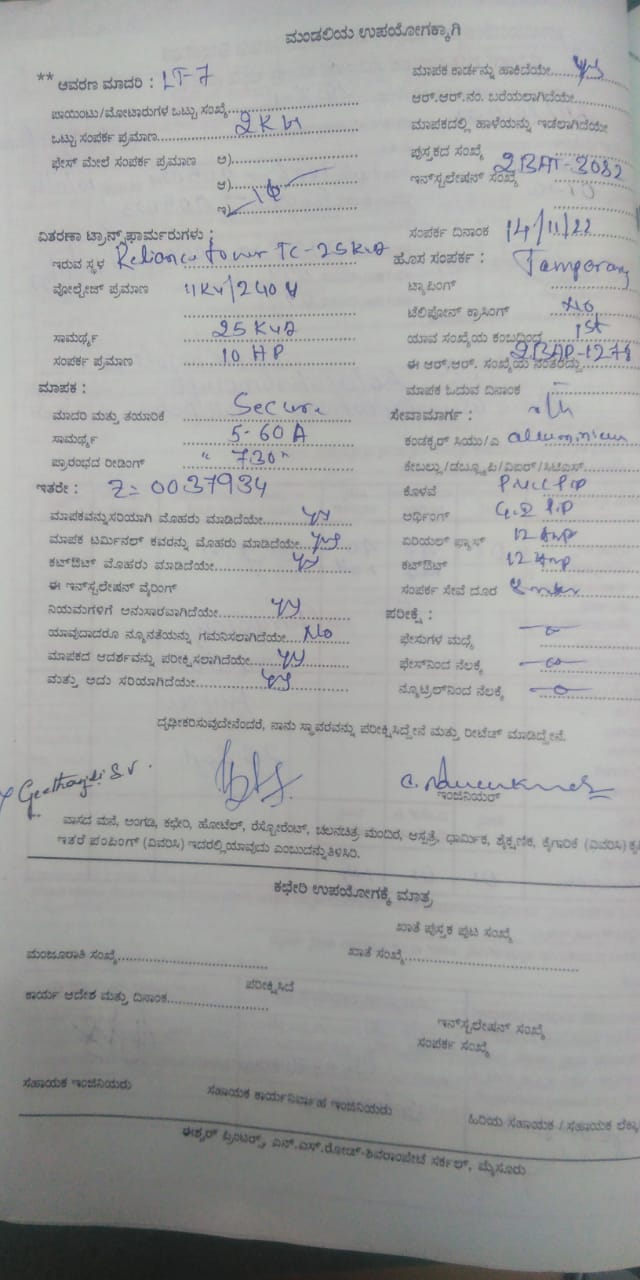 ಮಂಡಲಿಯ ಉಪಯೋಗಕ್ಕಾಗಿ
** ಆವರಣ ಮಾದರಿ : LT-7
ಪಾಯಿಂಟು/ಮೋಟಾರುಗಳ ಒಟ್ಟು ಸಂಖ್ಯೆ
ಒಟ್ಟು ಸಂಪರ್ಕ ಪ್ರಮಾಣ 2KW
ಫೇಸ್ ಮೇಲೆ ಸಂಪರ್ಕ ಪ್ರಮಾಣ ಅ)
ಆ)
ಇ) 1φ
ವಿತರಣಾ ಟ್ರಾನ್ಸ್‌ಫಾರ್ಮರುಗಳು :
ಇರುವ ಸ್ಥಳ Reliance tower TC-25KVA
ವೋಲ್ಟೇಜ್ ಪ್ರಮಾಣ 11KV/240V
ಸಾಮರ್ಥ್ಯ 25KVA
ಸಂಪರ್ಕ ಪ್ರಮಾಣ 10 HP
ಮಾಪಕ :
ಮಾದರಿ ಮತ್ತು ತಯಾರಿಕೆ Secure
ಸಾಮರ್ಥ್ಯ 5-60A
ಪ್ರಾರಂಭದ ರೀಡಿಂಗ್ "730"
ಇತರೇ : Z=0037934
ಮಾಪಕವನ್ನು ಸರಿಯಾಗಿ ಮೊಹರು ಮಾಡಿದೆಯೇ yes
ಮಾಪಕ ಟರ್ಮಿನಲ್ ಕವರನ್ನು ಮೊಹರು ಮಾಡಿದೆಯೇ yes
ಕಟ್‌ಔಟ್ ಮೊಹರು ಮಾಡಿದೆಯೇ yes
ಈ ಇನ್‌ಸ್ಟಲೇಷನ್ ವೈರಿಂಗ್
ನಿಯಮಗಳಿಗೆ ಅನುಸಾರವಾಗಿದೆಯೇ yes
ಯಾವುದಾದರೂ ನ್ಯೂನತೆಯನ್ನು ಗಮನಿಸಲಾಗಿದೆಯೇ No
ಮಾಪಕದ ಆದರ್ಶವನ್ನು ಪರೀಕ್ಷಿಸಲಾಗಿದೆಯೇ yes
ಮತ್ತು ಅದು ಸರಿಯಾಗಿದೆಯೇ yes
ಮಾಪಕ ಕಾರ್ಡನ್ನು ಹಾಕಿದೆಯೇ yes
ಆರ್.ಆರ್.ನಂ. ಬರೆಯಲಾಗಿದೆಯೇ
ಮಾಪಕದಲ್ಲಿ ಹಾಳೆಯನ್ನು ಇಡಲಾಗಿದೆಯೇ
ಪುಸ್ತಕದ ಸಂಖ್ಯೆ
ಇನ್‌ಸ್ಟಲೇಷನ್ ಸಂಖ್ಯೆ 2BAT-3082
ಸಂಪರ್ಕ ದಿನಾಂಕ 14/11/22
ಹೊಸ ಸಂಪರ್ಕ : Temporary
ಟ್ಯಾಪಿಂಗ್
ಟೆಲಿಫೋನ್ ಕ್ರಾಸಿಂಗ್ No
ಯಾವ ಸಂಖ್ಯೆಯ ಕಂಬದಿಂದ 1st
ಈ ಆರ್.ಆರ್. ಸಂಖ್ಯೆಯ ನಂತರದ್ದು 2BAP-1278
ಮಾಪಕ ಓದುವ ದಿನಾಂಕ –
ಸೇವಾಮಾರ್ಗ :
ಕಂಡಕ್ಟರ್ ಸಿಯು/ಎ aluminium
ಕೇಬಲ್ಲು/ಡಬ್ಲ್ಯೂಪಿ/ವಿಐಆರ್/ಸಿಟಿಎಸ್
ಕೊಳವೆ
ಅರ್ಥಿಂಗ್
ಏರಿಯಲ್ ಫ್ಯೂಸ್ 12 Amp
ಕಟ್‌ಔಟ್ 12 Amp
ಸಂಪರ್ಕ ಸೇವೆ ದೂರ
ಪರೀಕ್ಷೆ :
ಫೇಸುಗಳ ಮಧ್ಯೆ
ಫೇಸ್‌ನಿಂದ ನೆಲಕ್ಕೆ
ನ್ಯೂಟ್ರಲ್‌ನಿಂದ ನೆಲಕ್ಕೆ
ದೃಢೀಕರಿಸುವುದೇನೆಂದರೆ, ನಾನು ಸ್ಥಾವರವನ್ನು ಪರೀಕ್ಷಿಸಿದ್ದೇನೆ ಮತ್ತು ರೀಟೆಡ್ ಮಾಡಿದ್ದೇನೆ.
Geethanjali S.V.
ಇಂಜಿನಿಯರ್
ವಾಸದ ಮನೆ, ಅಂಗಡಿ, ಕಛೇರಿ, ಹೋಟೆಲ್, ರೆಸ್ಟೋರೆಂಟ್, ಚಲನಚಿತ್ರ ಮಂದಿರ, ಆಸ್ಪತ್ರೆ, ಧಾರ್ಮಿಕ, ಶೈಕ್ಷಣಿಕ, ಕೈಗಾರಿಕೆ (ವಿವರಿಸಿ)
ಇತರೆ ಪಂಪಿಂಗ್ (ವಿವರಿಸಿ) ಇದರಲ್ಲಿ ಯಾವುದು ಎಂಬುದನ್ನು ತಿಳಿಸಿರಿ.
ಕಛೇರಿ ಉಪಯೋಗಕ್ಕೆ ಮಾತ್ರ
ಖಾತೆ ಪುಸ್ತಕ ಪುಟ ಸಂಖ್ಯೆ
ಮಂಜೂರಾತಿ ಸಂಖ್ಯೆ ಖಾತೆ ಸಂಖ್ಯೆ
ಪರೀಕ್ಷಿಸಿದೆ
ಕಾರ್ಯ ಆದೇಶ ಮತ್ತು ದಿನಾಂಕ
ಇನ್‌ಸ್ಟಲೇಷನ್ ಸಂಖ್ಯೆ
ಸಂಪರ್ಕ ಸಂಖ್ಯೆ
ಸಹಾಯಕ ಇಂಜಿನಿಯರು ಸಹಾಯಕ ಕಾರ್ಯನಿರ್ವಾಹ ಇಂಜಿನಿಯರು ಹಿರಿಯ ಸಹಾಯಕ / ಸಹಾಯಕ
ಈಶ್ವರ್ ಪ್ರಿಂಟರ್ಸ್, ಎನ್.ಎಸ್.ರೋಡ್-ಶಿವರಾಂಪೇಟೆ ಸರ್ಕಲ್, ಮೈಸೂರು